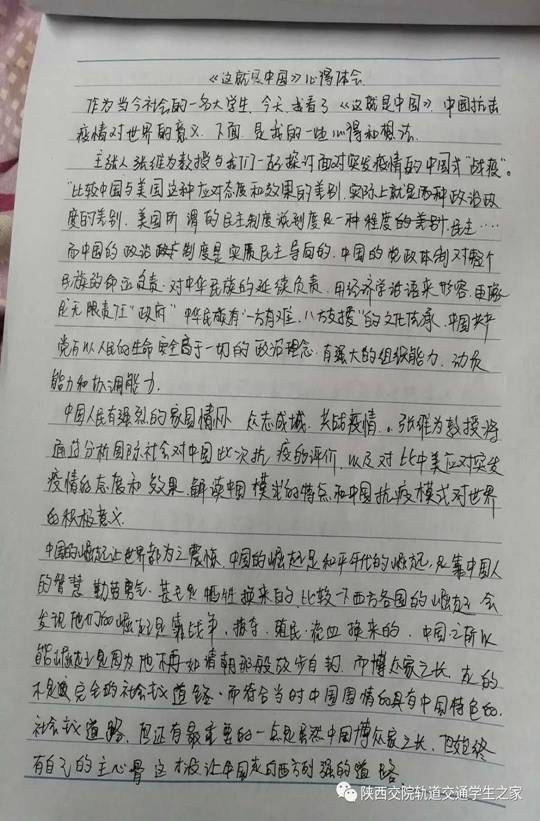 《这就是中国》心得体会
作为当今社会的一名大学生，今天，我看了《这就是中国》，中国抗击
疫情对世界的意义，下面是我的一些心得和想法。
主张人张维为教授与我们一起探讨面对突发疫情的中国式“战疫”。
“比较中国与美国这种应对态度和效果的差别，实际上就是两种政治政
度的差别，美国所谓的民主制度说制度是一种程度的差别，民主……
而中国的政治政扩制度是实质民主导向的，中国的党政体制对整个
民族的命运负责，对中华民族的延续负责，用经济学话语来形容，更像
是无限责任“政府”中华民族有“一方有难，八方支援”的文化传承，中国共产
党有以人民的生命安全高于一切的政治理念，有强大的组织能力、动员
能力和协调能力。
中国人民有强烈的家国情怀 众志成城，共战疫情。。张维为教授将
通过分析国际社会对中国此次抗疫的评价，以及对比中美应对突发
疫情的态度和效果，解读中国模式的特点和中国抗疫模式对世界
的积极意义。
中国的崛起让世界都为之震惊，中国的崛起是和平年代的崛起，是靠中国人
的智慧 勤苗勇气，甚至是牺牲换来的，比较一下西方各国的崛起 会
发现他们的崛起是靠战争，掠夺，殖民，流血换来的，中国之所以
能崛起是因为他不再如清朝那般故步自封，而博众家之长，走的
不是完全的社会主义道路，而符合当时中国国情的具有中国特色的
社会主义道路，但还有最重要的一点是虽然中国博众家之长，但始终
有自己的主心骨 这才没让中国走向西方列强的道路。
陕西交院轨道交通学生之家